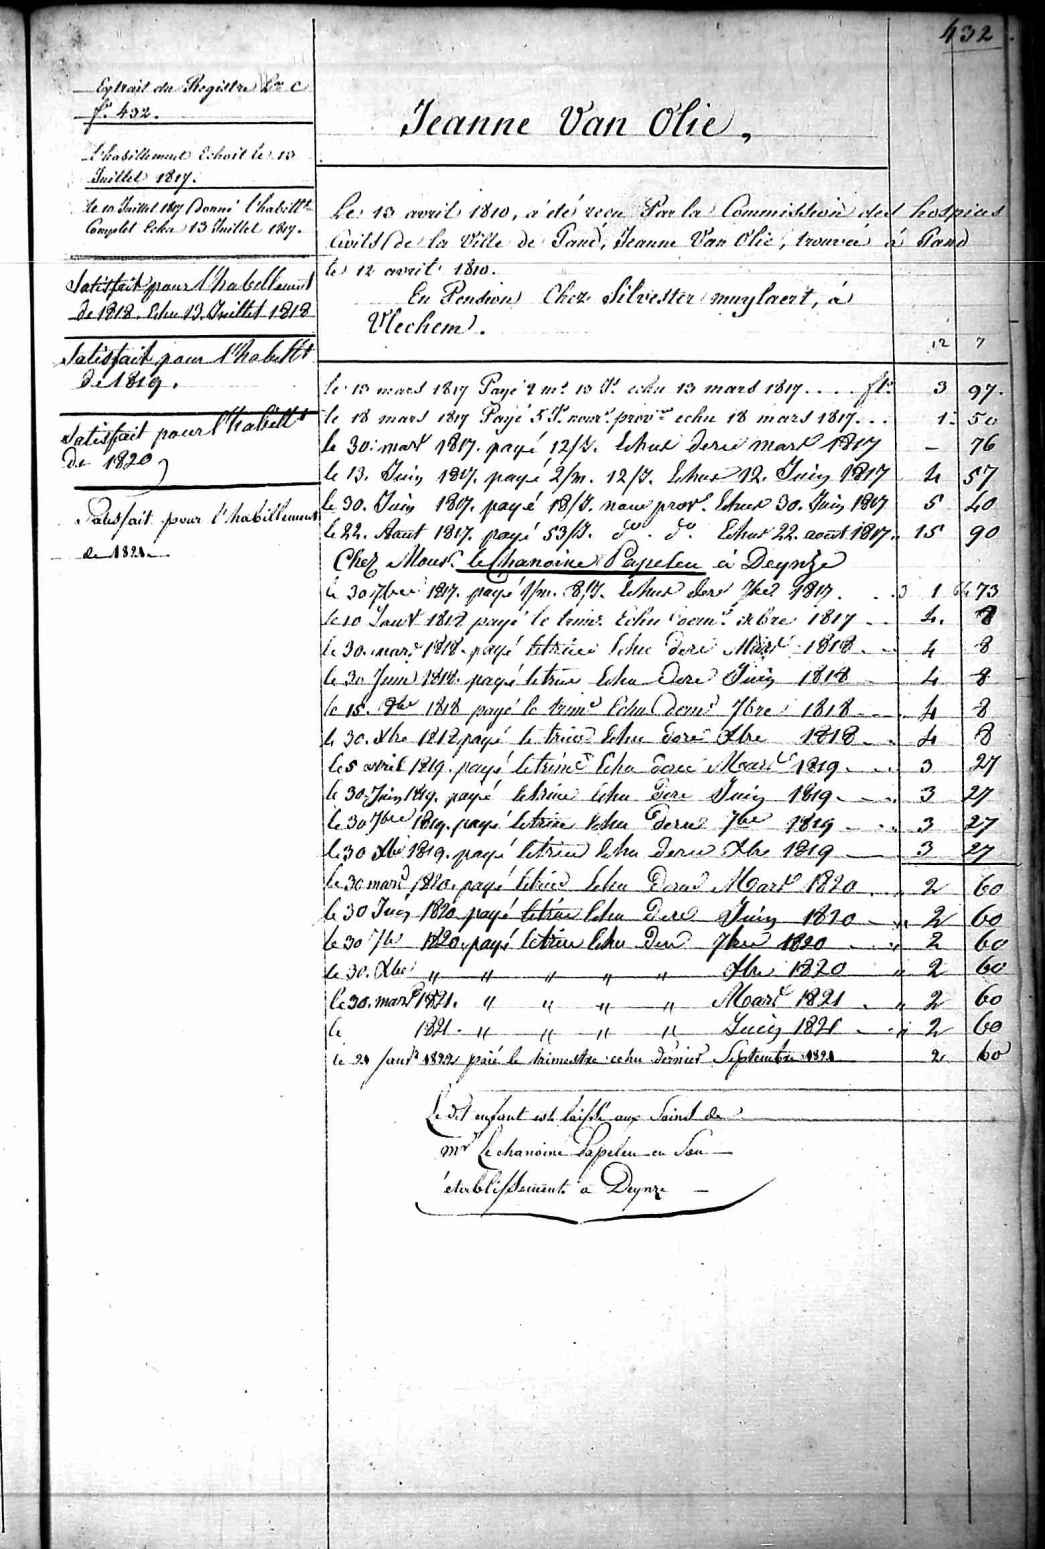 432
Extrait du Registre Lre C
fo. 432.
L'habillement Echoit le 13
Juillet 1817.
le 10 Juillet 1817 Donné l'habillt.
Complet Echu 13 Juillet 1817.
Satisfait pour l'habillement
de 1818. Echu 13. Juillet 1818
Satisfait pour l'habillt
de 1819.
Satisfait pour l'habillt
de 1820
Satisfait pour l'habillement
de 1821.
Jeanne Van Olie,
Le 13 avril 1810, a été recu Par la Commission des hospices
Civils de la Ville de Gand, Jeanne Van Olie, trouvée á Gand
le 12 avril 1810.
En Pension Chez Silvester muylaert, á
Vlechem.
12 7
le 13 mars 1817 Payé 2 ms. 13 Js. echu 13 mars 1817 .... fls. 3 97.
le 18 mars 1817 Payé 5 Js. nour. prov. echu 18 mars 1817... 1. 50
le 30. mars 1817. payé 12/J. Echus derè mars 1817 - 76
le 13. Juin 1817. payé 2/m. 12/J. Echus 12. Juin 1817 4 57
le 30. Juin 1817. payé 18/J. nouv prov. Echus 30. Juin 1817 5 40
le 22. Aout 1817. payé 53/J. do. do. Echus 22. aout 1817. 15 90
Chez Monsr. le Chanoine Papeleu à Deynze
le 30 7bre 1817. payé 1/m. 8/J. Echus dere 7bre 1817. 1 73
le 10 Janv 1818 payé le trim. Echu 1817 4. 8
le 30. mars 1818. payé le trim Echu dere Mars 1818 4 8
le 30 Juin 1818. payé le trim Echu dere Juin 1818 4 8
le 15. 8bre 1818 payé le trim. Echu dern. 7bre 1818 4 8
le 30. Xbre 1818 payé le trim Echu dere Xbre 1818 4 8
le 5 avril 1819. payé le trim Echu dere Mars 1819. 3 27
le 30. Juin 1819. payé le trim Echu dere Juin 1819 3 27
le 30 7bre 1819. payé le trim Echu dern 7bre 1819 3 27
le 30 Xbre 1819. payé le trim Echu dern Xbre 1819 3 27
le 30 mars 1820. payé le trim Echu dern Mars 1820 2 60
le 30 Juin 1820 payé le trim Echu dere Juin 1820 2 60
le 30 7bre 1820. payé le trim Echu dern 7bre 1820 2 60
le 30. Xbre " " " " " Xbre 1820 " 2 60
le 30. mars 1821. " " " " Mars 1821. " 2 60
le 1821. " " " " Juin 1821 " 2 60
le 21 Janvr 1822 paié le trimestre echu dernier Septembre 1821 2 60
Le dit enfant est laissé aux Soins de
Mr Le chanoine Papeleu en Son
établissement a Deynze